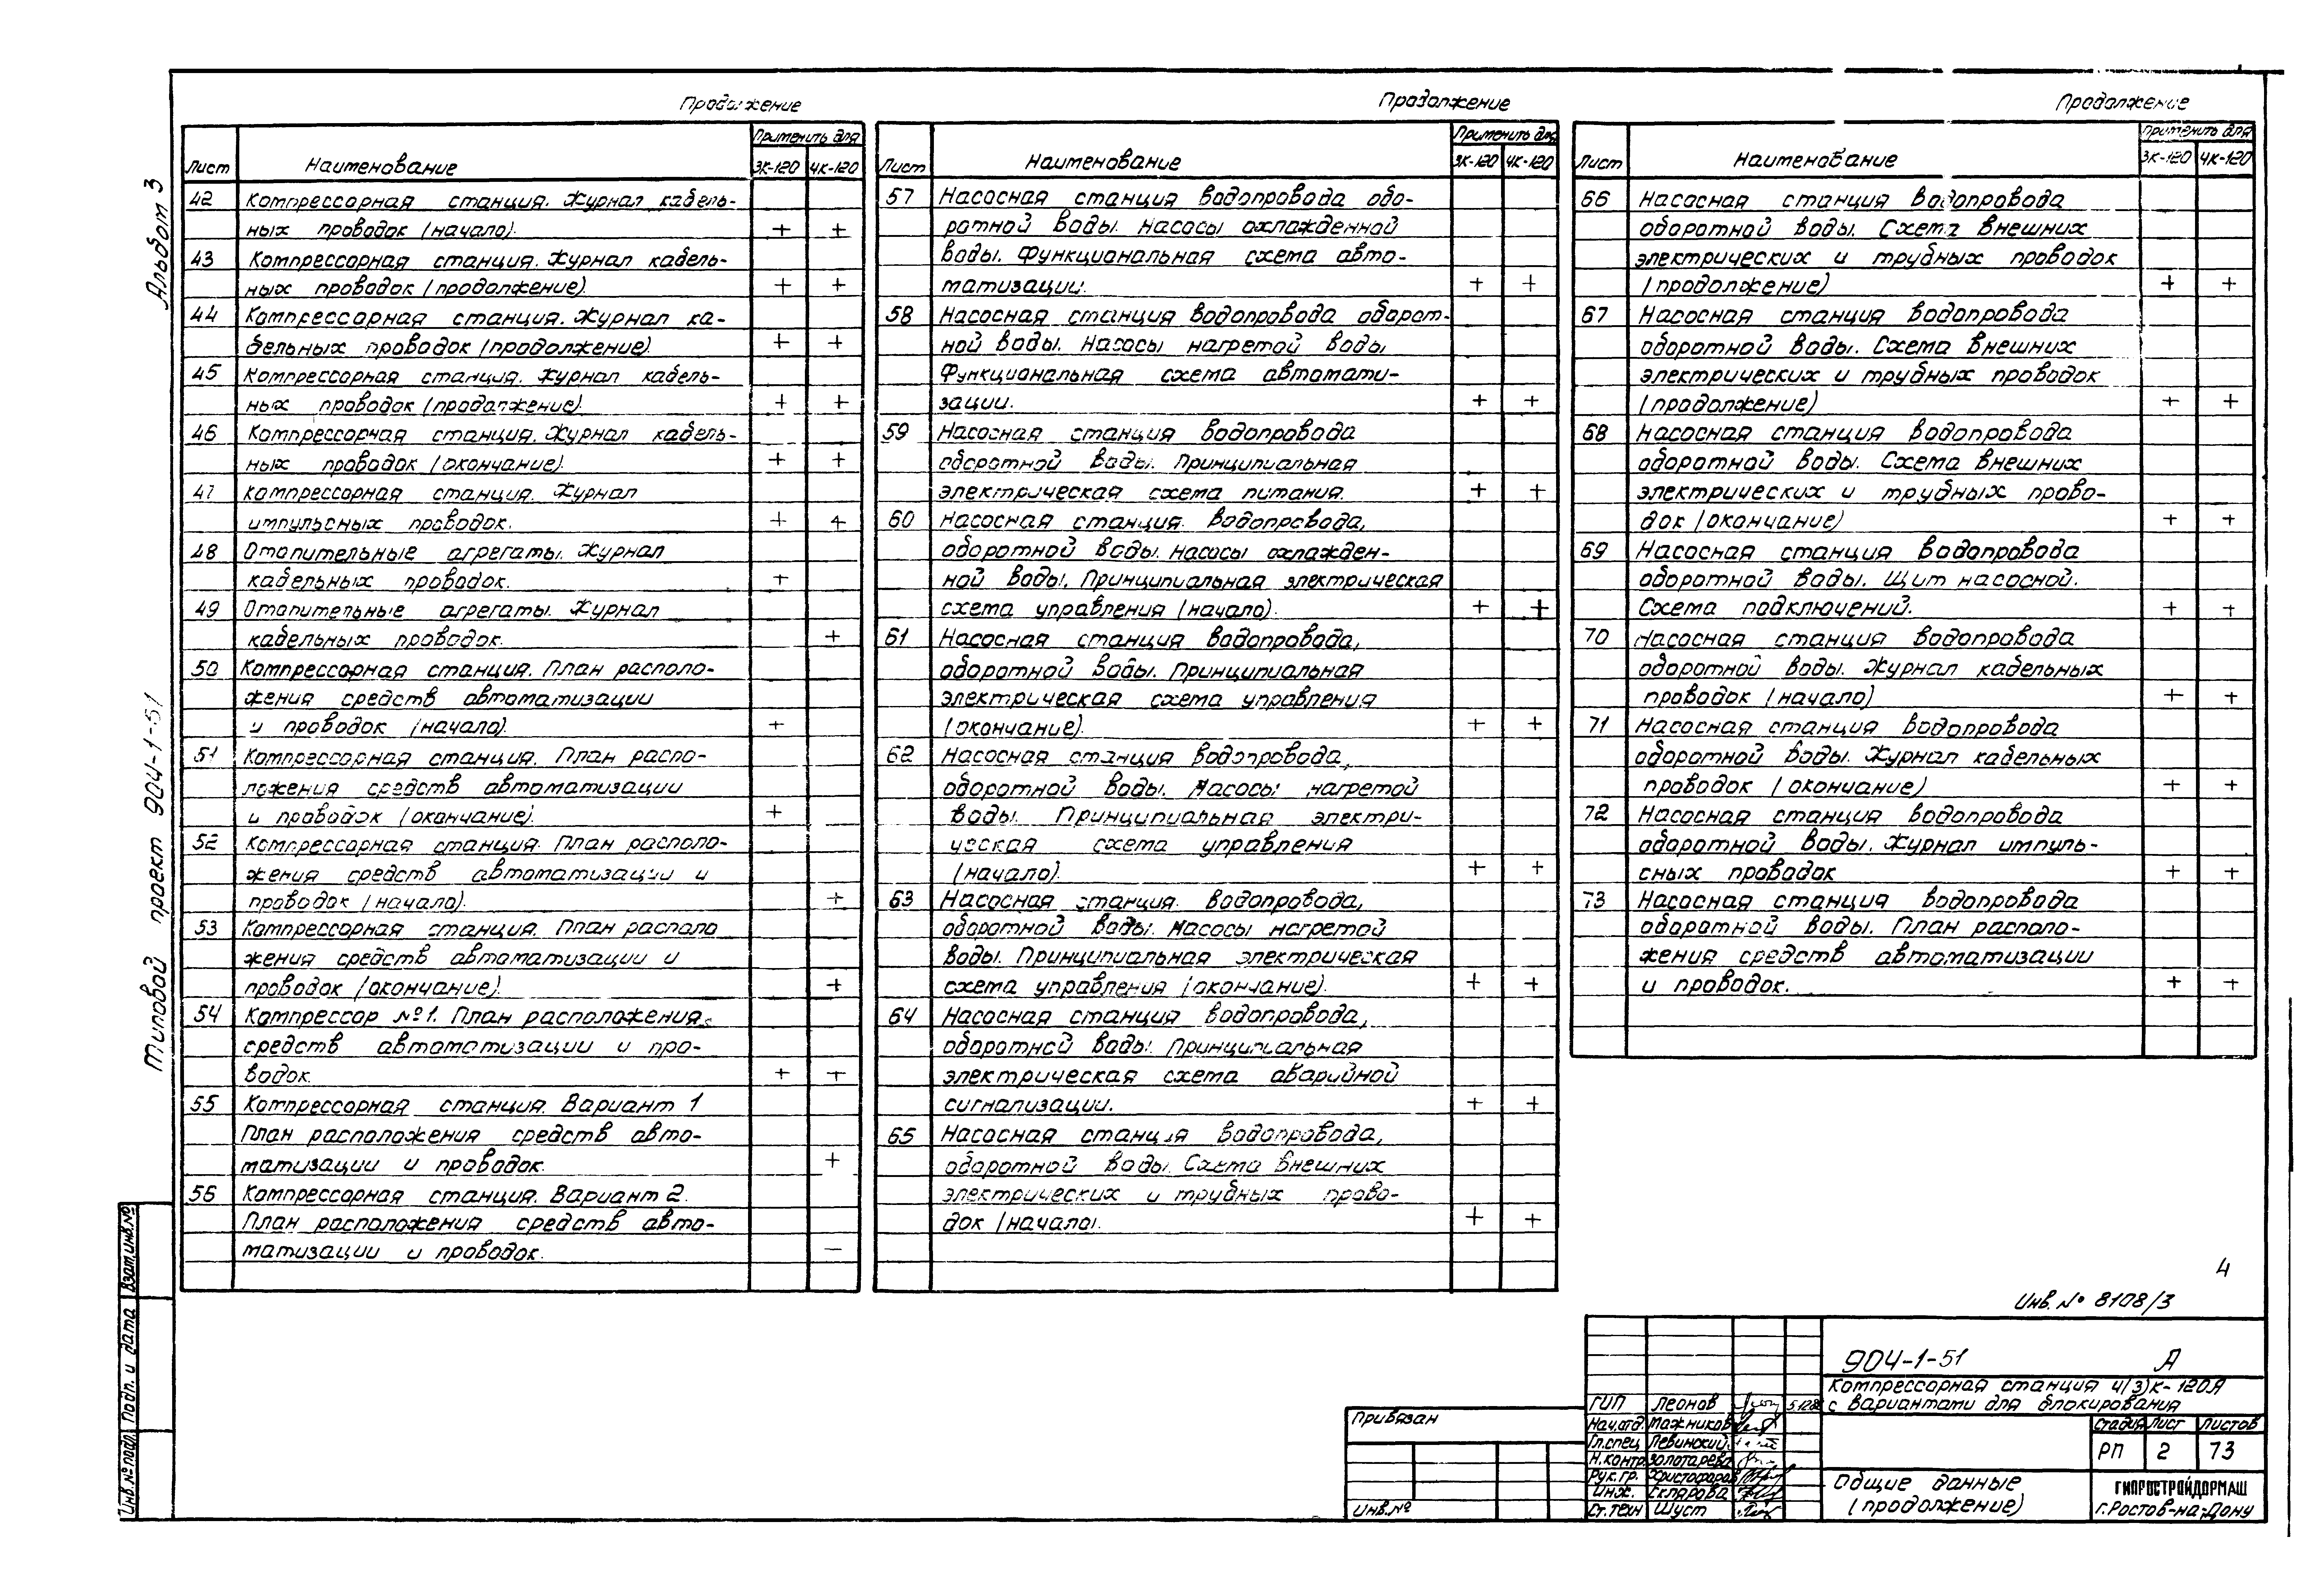 Продолжение
Лист Наименование Применить для
3К-120 4К-120
42 Компрессорная станция. Журнал кабель-
ных проводок (начало). + +
43 Компрессорная станция. Журнал кабель-
ных проводок (продолжение). + +
44 Компрессорная станция. Журнал ка-
бельных проводок (продолжение). + +
45 Компрессорная станция. Журнал кабель-
ных проводок (продолжение). + +
46 Компрессорная станция. Журнал кабель-
ных проводок (окончание). + +
47 Компрессорная станция. Журнал
импульсных проводок. + +
48 Отопительные агрегаты. Журнал
кабельных проводок. +
49 Отопительные агрегаты. Журнал
кабельных проводок. +
50 Компрессорная станция. План располо-
жения средств автоматизации
и проводок (начало). +
51 Компрессорная станция. План распо-
ложения средств автоматизации
и проводок (окончание). +
52 Компрессорная станция. План располо-
жения средств автоматизации и
проводок (начало). +
53 Компрессорная станция. План располо
жения средств автоматизации и
проводок (окончание). +
54 Компрессор №1. План расположения
средств автоматизации и про-
водок. + +
55 Компрессорная станция. Вариант 1
План расположения средств авто-
матизации и проводок. +
56 Компрессорная станция. Вариант 2.
План расположения средств авто-
матизации и проводок. –
Продолжение
Лист Наименование Применить для
3К-120 4К-120
57 Насосная станция водопровода обо-
ротной воды. Насосы охлажденной
воды. Функциональная схема авто-
матизации. + +
58 Насосная станция водопровода оборот-
ной воды. Насосы нагретой воды
Функциональная схема автомати-
зации. + +
59 Насосная станция водопровода
оборотной воды. Принципиальная
электрическая схема питания. + +
60 Насосная станция водопровода,
оборотной воды. Насосы охлажден-
ной воды. Принципиальная электрическая
схема управления (начало). + +
61 Насосная станция водопровода,
оборотной воды. Принципиальная
электрическая схема управления
(окончание). + +
62 Насосная станция водопровода,
оборотной воды. Насосы нагретой
воды. Принципиальная электри-
ческая схема управления
(начало). + +
63 Насосная станция водопровода,
оборотной воды. Насосы нагретой
воды. Принципиальная электрическая
схема управления (окончание). + +
64 Насосная станция водопровода,
оборотной воды. Принципиальная
электрическая схема аварийной
сигнализации. + +
65 Насосная станция водопровода,
оборотной воды. Схема внешних
электрических и трубных прово-
док (начало). + +
Продолжение
Лист Наименование Применить для
3К-120 4К-120
66 Насосная станция водопровода
оборотной воды. Схема внешних
электрических и трубных проводок
(продолжение) + +
67 Насосная станция водопровода
оборотной воды. Схема внешних
электрических и трубных проводок
(продолжение) + +
68 Насосная станция водопровода
оборотной воды. Схема внешних
электрических и трубных прово-
док (окончание) + +
69 Насосная станция водопровода
оборотной воды. Щит насосной.
Схема подключений. + +
70 Насосная станция водопровода
оборотной воды. Журнал кабельных
проводок (начало) + +
71 Насосная станция водопровода
оборотной воды. Журнал кабельных
проводок (окончание) + +
72 Насосная станция водопровода
оборотной воды. Журнал импуль-
сных проводок + +
73 Насосная станция водопровода
оборотной воды. План располо-
жения средств автоматизации
и проводок. + +
Альбом 3
Типовой проект 904-1-51
Взам.инв.№
Подп. и дата
Инв.№ подл.
4
Инв. № 8108/3
904-1-51 А
Компрессорная станция 4(3)К-120А
с вариантами для блокирования
Стадия Лист Листов
РП 2 73
Общие данные
(продолжение)
ГИПРОСТРОЙДОРМАШ
г.Ростов-на-Дону
ГИП Леонов
Нач.отд. Мажников
Гл.спец Левинский
Н.контр. Золотарева
Рук.гр. Христофоров
Инж. Склярова
Ст.техн Шуст
Привязан
Инв.№